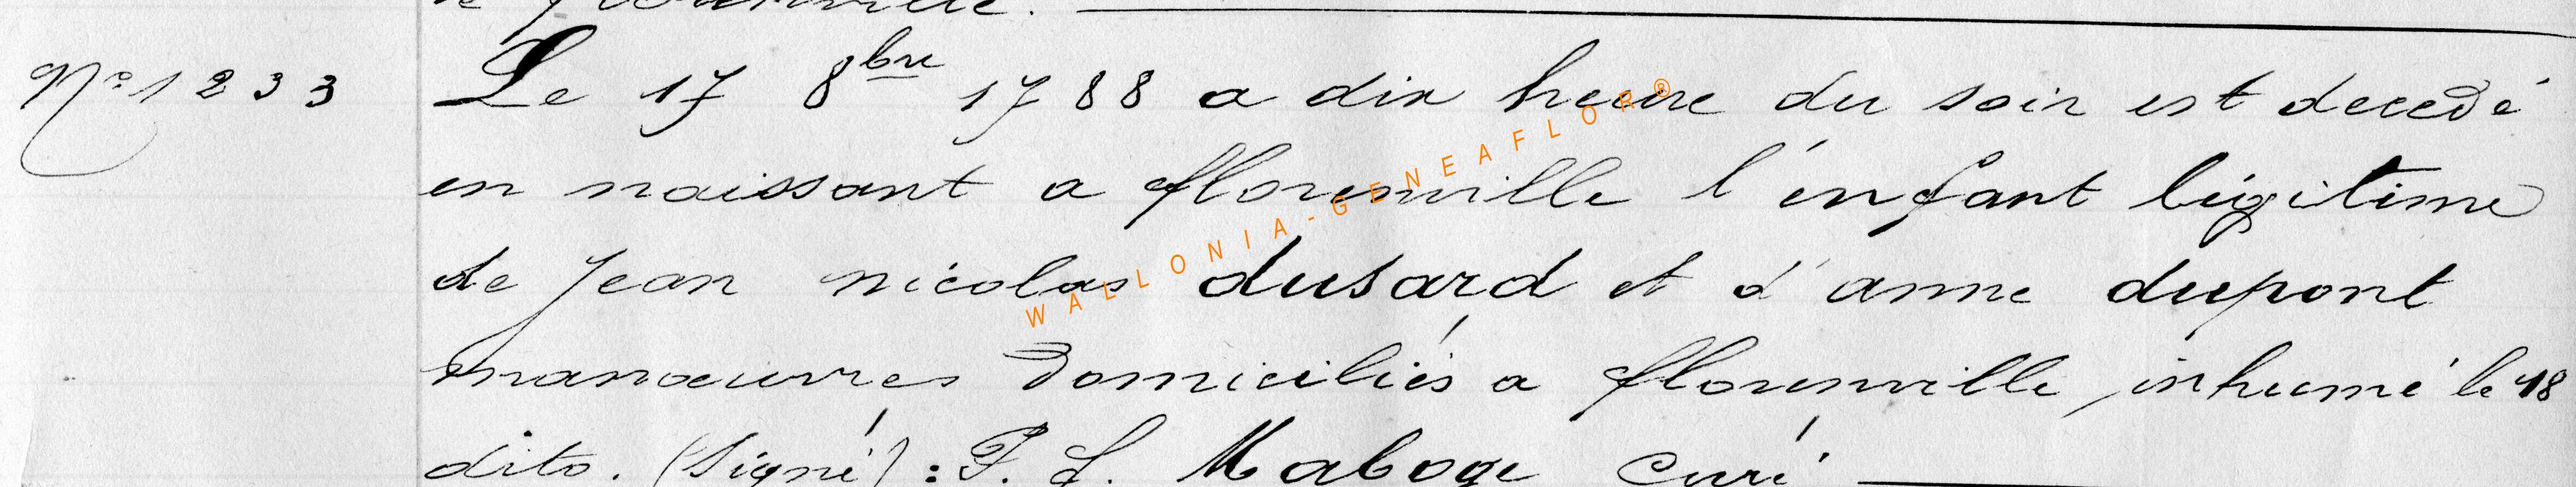 de florenville.
N° 1233 Le 17 8bre 1788 a dix heure du soir est decedé
en naissant a florenville l'enfant légitime
de Jean nicolas dusard et d'anne dupont
manœuvres domiciliés a florenville, inhumé le 18
dito. (Signé) : F. L. Maboge Curé
WALLONIA-GENEAFLOR®